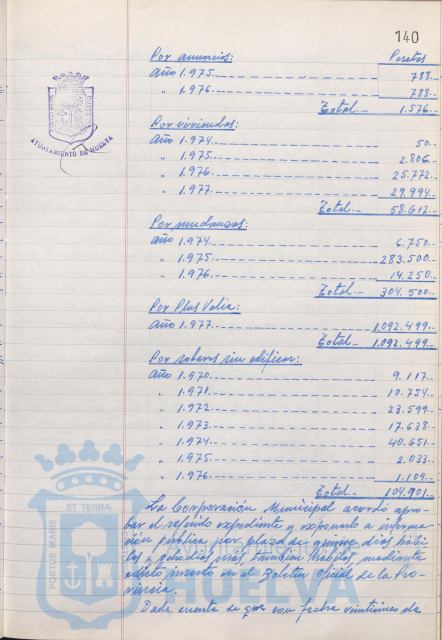 140
Por anuncios: Pesetas
Año 1.975 788.-
" 1.976 788.-
Total.- 1.576.-
Por viviendas:
Año 1.974 50.-
" 1.975 2.806.-
" 1.976 25.772.-
" 1.977 29.994.-
Total.- 58.612.-
Por mudanzas:
Año 1.974 6.750.-
" 1.975 283.500.-
" 1.976 14.250.-
Total.- 304.500.-
Por Plus Valia:
Año 1.977 1.092.499.-
Total.- 1.092.499.-
Por solares sin edificar:
Año 1.970 9.117.-
" 1.971 10.754.-
" 1.972 23.599.-
" 1.973 17.638.-
" 1.974 40.651.-
" 1.975 2.033.-
" 1.976 1.109.-
Total.- 104.901.-
La Corporación Municipal acordó apro-
bar el referido expediente y exponerlo a informa-
ción pública por plazo de quince días hábi-
les y ocho días más, también hábiles, mediante
edicto inserto en el Boletín Oficial de la Pro-
vincia.
Dada cuenta de que con fecha veintiuno de
AYUNTAMIENTO DE HUELVA
PORTUS MARIS ET TERRAE
HUELVA